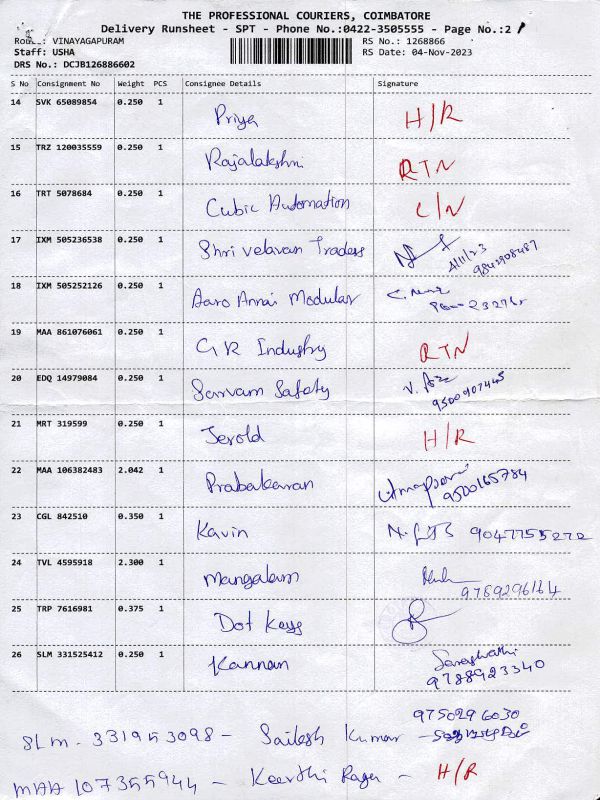 THE PROFESSIONAL COURIERS, COIMBATORE
Delivery Runsheet - SPT - Phone No.:0422-3505555 - Page No.:2
Route: VINAYAGAPURAM RS No.: 1268866
Staff: USHA RS Date: 04-Nov-2023
DRS No.: DCJB126886602
S No Consignment No Weight PCS Consignee Details Signature
14 SVK 65089854 0.250 1 Priya H/R
15 TRZ 120035559 0.250 1 Rajalakshmi RTN
16 TRT 5078684 0.250 1 Cubic Automation C/N
17 IXM 505236538 0.250 1 Shri Velavan Traders
4/11/23
9842908487
18 IXM 505252126 0.250 1 Aaro Annai Modular
19 MAA 861076061 0.250 1 GR Industry RTN
20 EDQ 14979084 0.250 1 Sarvam Safety
21 MRT 319599 0.250 1 Jerold H/R
22 MAA 106382483 2.042 1 Prabakaran
9500165784
23 CGL 842510 0.350 1 Kavin 9047755272
24 TVL 4595918 2.300 1 Mangalam
9789296164
25 TRP 7616981 0.375 1 Dot Keys
26 SLM 331525412 0.250 1 Kannan Saraswathi
9788923340
9750296030
SLM - 331953098 - Sailesh Kumar -
MAA 107355944 - Keerthi Raja - H/R